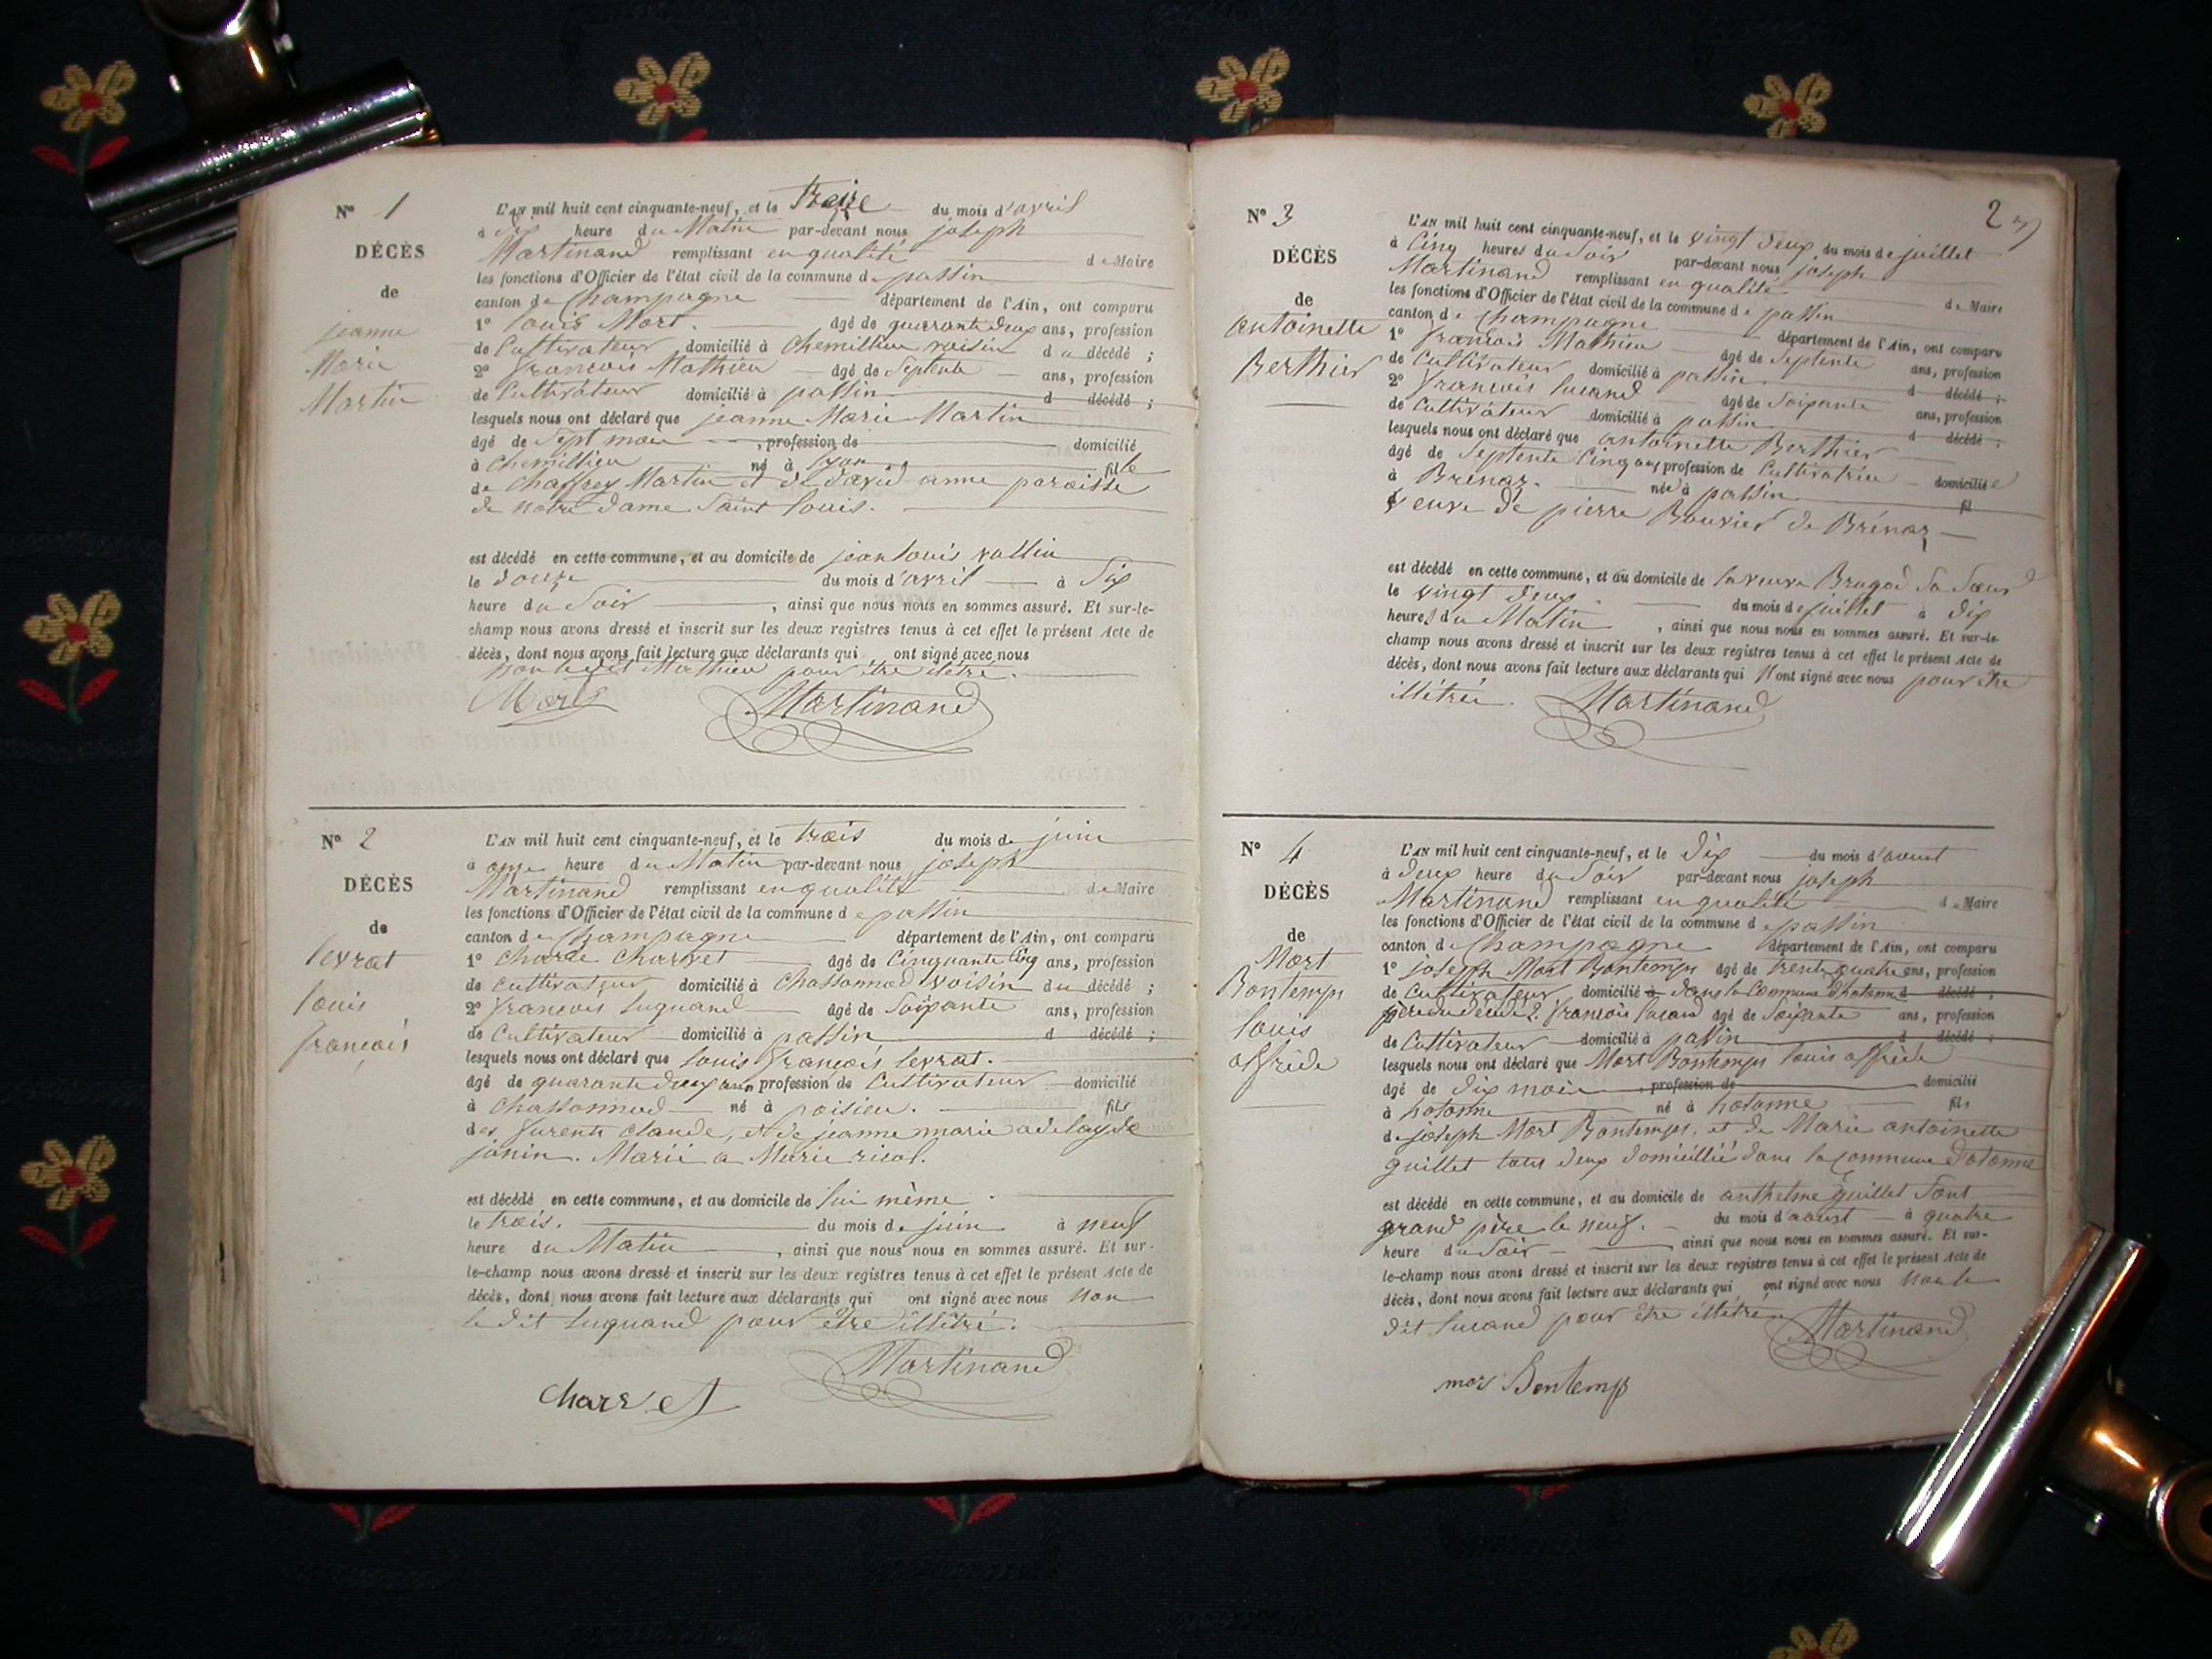 N° 1
DÉCÈS
de
jeanne
Marie
Martin
L'AN mil huit cent cinquante-neuf, et le treize du mois d'avril
à dix heure du Matin par-devant nous joseph
Martinand remplissant en qualité de Maire
les fonctions d'Officier de l'état civil de la commune de passin
canton de Champagne département de l'Ain, ont comparu
1° louis Mort. âgé de quarante deux ans, profession
de Cultivateur domicilié à Chemillieu voisin du décédé ;
2° françois Mathieu âgé de Septente ans, profession
de Cultivateur domicilié à passin d décédé ;
lesquels nous ont déclaré que jeanne Marie Martin
âgé de Sept mois , profession de domicilié
à Chemillieu né à lyon. fille
de Chaffrey Martin et de david anne paroisse
de notre dame Saint louis.
est décédé en cette commune, et au domicile de jean louis vallin
le douze du mois d'avril à Six
heure du Soir , ainsi que nous nous en sommes assuré. Et sur-le-
champ nous avons dressé et inscrit sur les deux registres tenus à cet effet le présent Acte de
décès, dont nous avons fait lecture aux déclarants qui ont signé avec nous
non ledit Mathieu pour être iletré.
Mort Martinand
N° 2
DÉCÈS
de
levrat
louis
françois
L'AN mil huit cent cinquante-neuf, et le trois du mois de juin
à onze heure du Matin par-devant nous joseph
Martinand remplissant en qualité de Maire
les fonctions d'Officier de l'état civil de la commune de passin
canton de Champagne département de l'Ain, ont comparu
1° Charle Charvet âgé de Cinquante Cinq ans, profession
de Cultivateur domicilié à Chassonnod voisin du décédé ;
2° françois luquand âgé de Soixante ans, profession
de Cultivateur domicilié à passin d décédé ;
lesquels nous ont déclaré que louis françois levrat.
âgé de quarante deux ans profession de Cultivateur domicilié
à Chassonnod né à poisieu. fils
des furent Claude, et de jeanne marie adelayde
janin. Marié a Marie ricol.
est décédé en cette commune, et au domicile de lui même
le trois. du mois de juin à neuf
heure du Matin , ainsi que nous nous en sommes assuré. Et sur-
le-champ nous avons dressé et inscrit sur les deux registres tenus à cet effet le présent Acte de
décès, dont nous avons fait lecture aux déclarants qui ont signé avec nous Non
le dit luquand pour être illétré.
Martinand
Charvet
2
N° 3
DÉCÈS
de
antoinette
Berthier
L'AN mil huit cent cinquante-neuf, et le vingt deux du mois de juillet
à Cinq heures du Soir par-devant nous joseph
Martinand remplissant en qualité de Maire
les fonctions d'Officier de l'état civil de la commune de passin
canton de Champagne département de l'Ain, ont comparu
1° françois Mathieu âgé de Septente ans, profession
de Cultivateur domicilié à passin d décédé ;
2° françois lucand âgé de Soixante ans, profession
de Cultivateur domicilié à passin d décédé ;
lesquels nous ont déclaré que antoinette Berthier
âgé de Septente Cinq ans profession de Cultivatrice domiciliée
à Brénaz. née à passin fil
veuve de pierre Bouvier de Brénaz
est décédé en cette commune, et au domicile de la veuve Brugod Sa Sœur
le vingt deux du mois de juillet à dix
heures du Matin , ainsi que nous nous en sommes assuré. Et sur-le-
champ nous avons dressé et inscrit sur les deux registres tenus à cet effet le présent Acte de
décès, dont nous avons fait lecture aux déclarants qui N'ont signé avec nous pour être
illétrés. Martinand
N° 4
DÉCÈS
de
Mort
Bontemps
louis
alfrède
L'AN mil huit cent cinquante-neuf, et le dix du mois d'aoust
à deux heure du Soir par-devant nous joseph
Martinand remplissant en qualité de Maire
les fonctions d'Officier de l'état civil de la commune de passin
canton de Champagne département de l'Ain, ont comparu
1° joseph Mort Bontemps âgé de trente quatre ans, profession
de Cultivateur domicilié à dans la Commune d'hotonne d décédé ;
père du décédé 2° françois lucand âgé de Soixante ans, profession
de Cultivateur domicilié à passin d décédé ;
lesquels nous ont déclaré que Mort Bontemps louis alfrède
âgé de dix mois , profession de domicilié
à hotonne né à hotonne fils
de joseph Mort Bontemps, et de Marie antoinette
guillet tous deux domicillié dans la Commune d'otonne
est décédé en cette commune, et au domicile de anthelme guillet Sont
grand père le neuf. du mois d'aoust à quatre
heure du Soir ainsi que nous nous en sommes assuré. Et sur-
le-champ nous avons dressé et inscrit sur les deux registres tenus à cet effet le présent Acte de
décès, dont nous avons fait lecture aux déclarants qui ont signé avec nous Non le
dit lucand pour être illétré Martinand
mor Bontemp